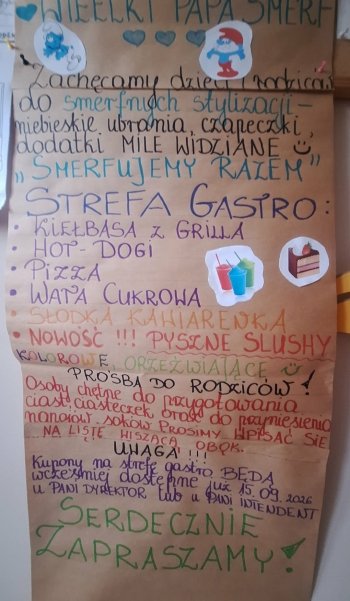 WIELKI PAPA SMERF
Zachęcamy dzieci i rodziców
do smerfnych stylizacji -
niebieskie ubrania, czapeczki,
dodatki MILE WIDZIANE
"SMERFUJEMY RAZEM"
STREFA GASTRO:
• KIEŁBASA Z GRILLA
• HOT-DOGI
• PIZZA
• WATA CUKROWA
• SŁODKA KAWIARENKA
• NOWOŚĆ !!! PYSZNE SLUSHY
KOLOROWE, ORZEŹWIAJĄCE
PROŚBA DO RODZICÓW!
Osoby chętne do przygotowania
ciast, ciasteczek, oraz do przyniesienia
napojów, soków PROSIMY WPISAĆ SIĘ
NA LISTĘ WISZĄCĄ OBOK.
UWAGA!!!
Kupony na strefę gastro BĘDĄ
wcześniej dostępne już 15.09.2026
u PANI DYREKTOR lub u PANI INTENDENT
SERDECZNIE
ZAPRASZAMY!